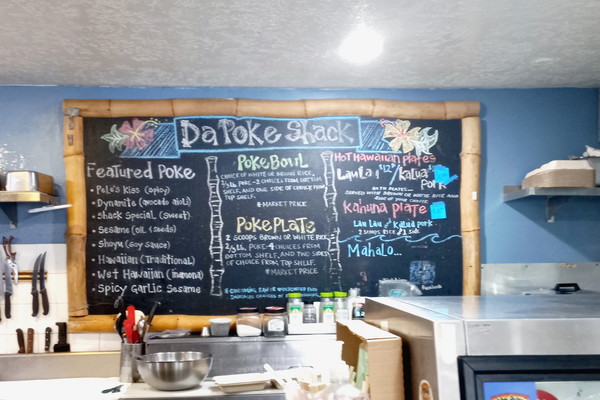 Da Poke Shack
Featured Poke
• Pele's Kiss (spicy)
• Dynamite (avocado aioli)
• Shack Special (sweet)
• Sesame (oil & seeds)
• Shoyu (soy sauce)
• Hawaiian (Traditional)
• Wet Hawaiian (inamona)
• Spicy Garlic Sesame
Poke Bowl
CHOICE OF WHITE OR BROWN RICE,
1/2 lb. POKE - 2 CHOICES FROM BOTTOM
SHELF, AND ONE SIDE OF CHOICE FROM
TOP SHELF.
*MARKET PRICE
Poke Plate
2 SCOOPS BROWN OR WHITE RICE
POKE - 4 CHOICES FROM
BOTTOM SHELF, AND TWO SIDES
OF CHOICE FROM TOP SHELF.
*MARKET PRICE
Hot Hawaiian Plates
Lau Lau $12
Kalua Pork
BOTH PLATES
SERVED WITH BROWN OR WHITE RICE AND
SIDE OF YOUR CHOICE
Kahuna Plate
Lau Lau and Kalua Pork
2 Scoops Rice & 1 Side
Mahalo...